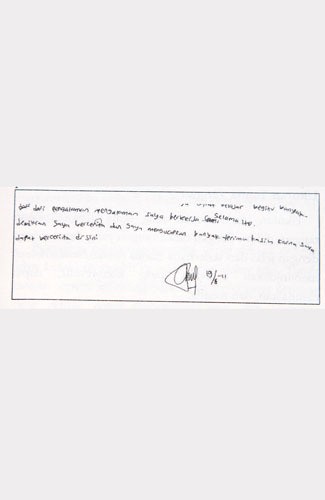 belajar begitu banyak
dari pengalaman mengalaman saya berkerja selama ini.
demikian saya bercerita dan saya mengucapkan banyak terima kasih karna saya
dapat bercerita disini
19/8-11